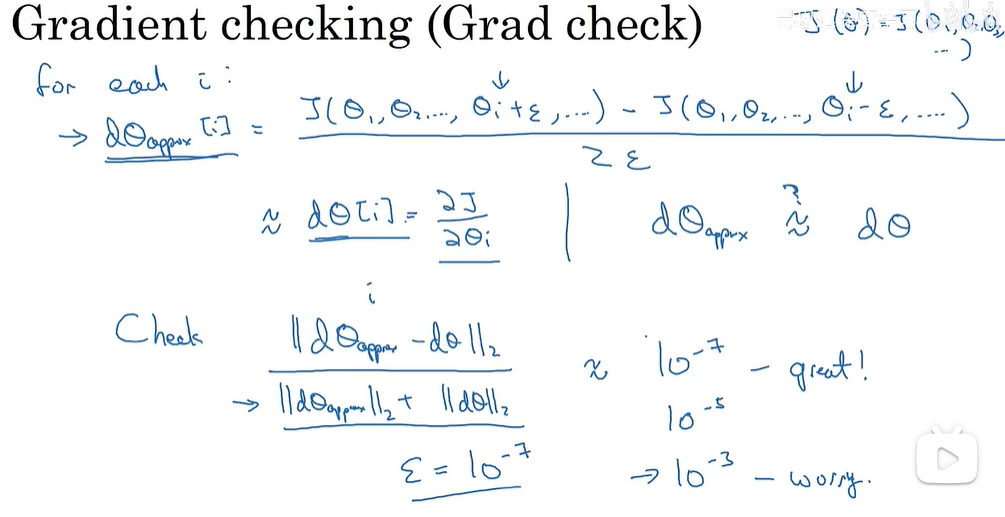 Gradient checking (Grad check)
J(θ) = J(θ₁, θ₂, θ₃, ...)
for each i:
→ dθapprox[i] = J(θ₁, θ₂, ..., θᵢ+ε, ...) - J(θ₁, θ₂, ..., θᵢ-ε, ...)
2ε
≈ dθ[i] = ∂J/∂θᵢ | dθapprox ≈? dθ
i
Check ‖dθapprox - dθ‖₂
→ ‖dθapprox‖₂ + ‖dθ‖₂
≈ 10⁻⁷ - great!
10⁻⁵
→ 10⁻³ - worry.
ε = 10⁻⁷